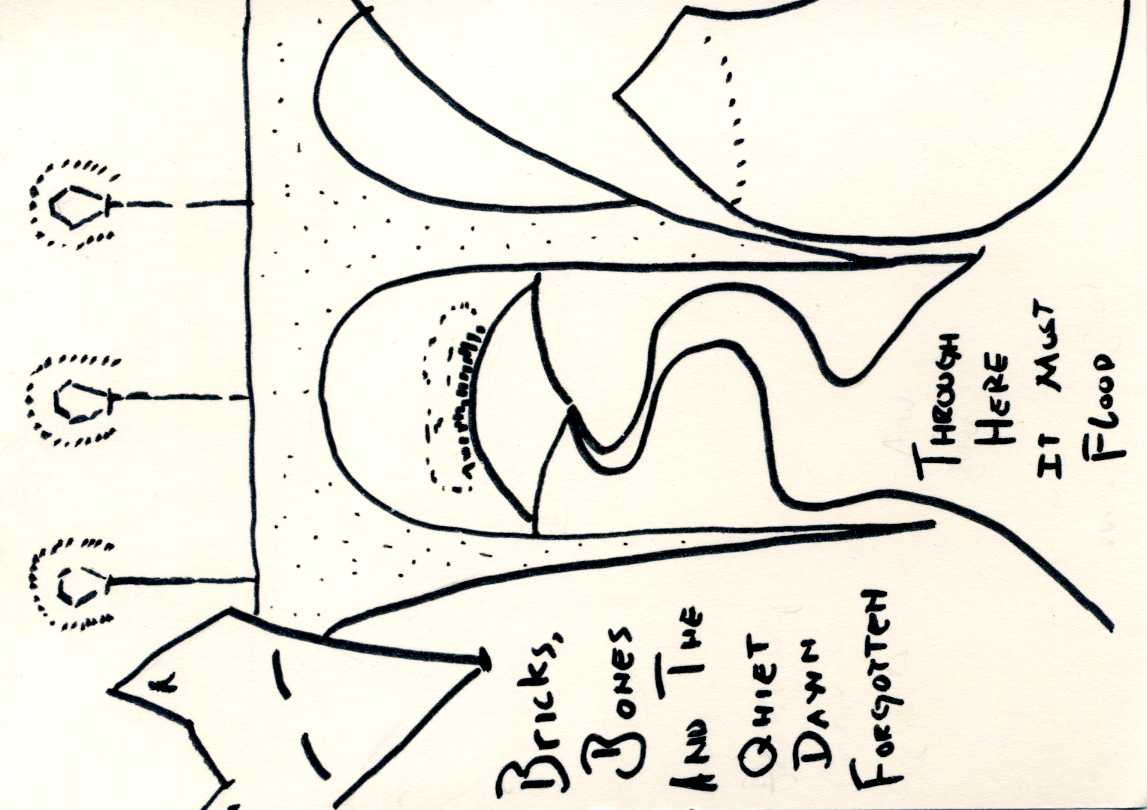 Bricks,
BONES
AND THE
QUIET
DAWN
FORGOTTEN
THROUGH
HERE
IT MUST
FLOOD